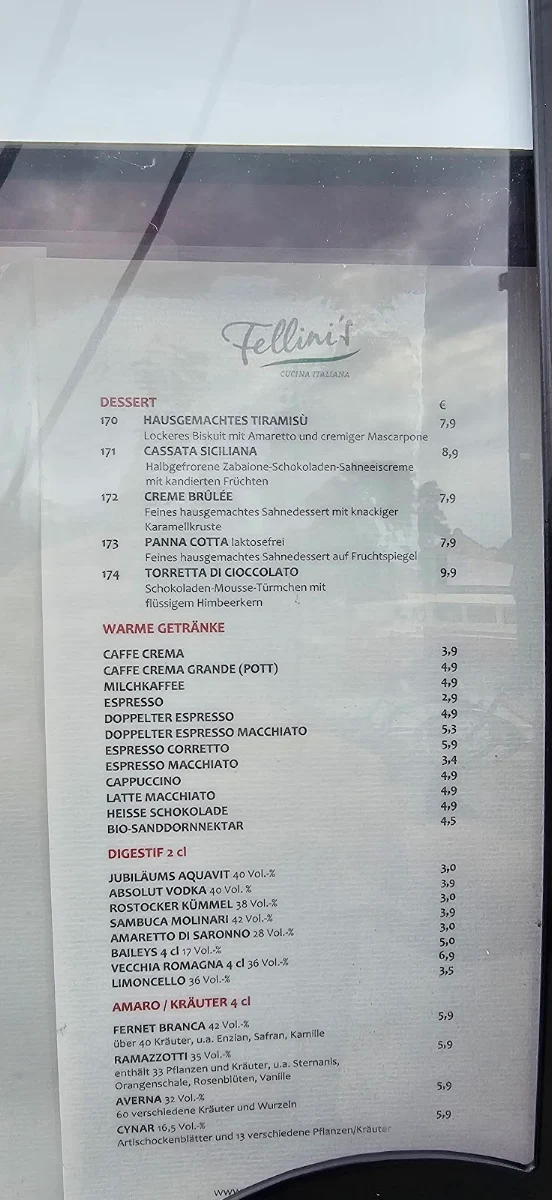 Fellini's
CUCINA ITALIANA
DESSERT €
170 HAUSGEMACHTES TIRAMISÙ 7,9
Lockeres Biskuit mit Amaretto und cremiger Mascarpone
171 CASSATA SICILIANA 8,9
Halbgefrorene Zabaione-Schokoladen-Sahneeiscreme
mit kandierten Früchten
172 CREME BRÛLÉE 7,9
Feines hausgemachtes Sahnedessert mit knackiger
Karamellkruste
173 PANNA COTTA laktosefrei 7,9
Feines hausgemachtes Sahnedessert auf Fruchtspiegel
174 TORRETTA DI CIOCCOLATO 9,9
Schokoladen-Mousse-Türmchen mit
flüssigem Himbeerkern
WARME GETRÄNKE
CAFFE CREMA 3,9
CAFFE CREMA GRANDE (POTT) 4,9
MILCHKAFFEE 4,9
ESPRESSO 2,9
DOPPELTER ESPRESSO 4,9
DOPPELTER ESPRESSO MACCHIATO 5,3
ESPRESSO CORRETTO 5,9
ESPRESSO MACCHIATO 3,4
CAPPUCCINO 4,9
LATTE MACCHIATO 4,9
HEISSE SCHOKOLADE 4,9
BIO-SANDDORNNEKTAR 4,5
DIGESTIF 2 cl
JUBILÄUMS AQUAVIT 40 Vol.-% 3,0
ABSOLUT VODKA 40 Vol. % 3,9
ROSTOCKER KÜMMEL 38 Vol.-% 3,0
SAMBUCA MOLINARI 42 Vol.-% 3,9
AMARETTO DI SARONNO 28 Vol.-% 3,0
BAILEYS 4 cl 17 Vol.-% 5,0
VECCHIA ROMAGNA 4 cl 36 Vol.-% 6,9
LIMONCELLO 36 Vol.-% 3,5
AMARO / KRÄUTER 4 cl
FERNET BRANCA 42 Vol.-% 5,9
über 40 Kräuter, u.a. Enzian, Safran, Kamille
RAMAZZOTTI 35 Vol.-% 5,9
enthält 33 Pflanzen und Kräuter, u.a. Sternanis,
Orangenschale, Rosenblüten, Vanille
AVERNA 32 Vol.-% 5,9
60 verschiedene Kräuter und Wurzeln
CYNAR 16,5 Vol.-% 5,9
Artischockenblätter und 13 verschiedene Pflanzen/Kräuter
www.